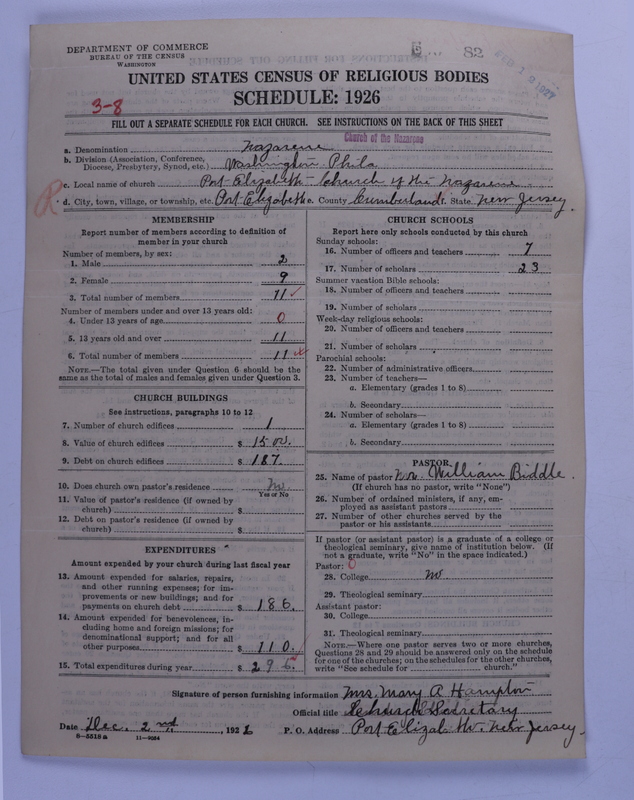 DEPARTMENT OF COMMERCE
BUREAU OF THE CENSUS
WASHINGTON
82
FEB 12 1927
UNITED STATES CENSUS OF RELIGIOUS BODIES
SCHEDULE: 1926
3-8
FILL OUT A SEPARATE SCHEDULE FOR EACH CHURCH. SEE INSTRUCTIONS ON THE BACK OF THIS SHEET
Church of the Nazarene
a. Denomination Nazarene
b. Division (Association, Conference, Diocese, Presbytery, Synod, etc.) Washington Phila
c. Local name of church Port Elizabeth - Church of the Nazarene
R
d. City, town, village, or township, etc. Port Elizabeth e. County Cumberland f. State New Jersey.
MEMBERSHIP
Report number of members according to definition of
member in your church
Number of members, by sex:
1. Male 2
2. Female 9
3. Total number of members 11
Number of members under and over 13 years old:
4. Under 13 years of age 0
5. 13 years old and over 11
6. Total number of members 11
NOTE.—The total given under Question 6 should be the
same as the total of males and females given under Question 3.
CHURCH BUILDINGS
See instructions, paragraphs 10 to 12
7. Number of church edifices 1
8. Value of church edifices $ 1500.
9. Debt on church edifices $ 187.
10. Does church own pastor's residence No
Yes or No
11. Value of pastor's residence (if owned by
church) $
12. Debt on pastor's residence (if owned by
church) $
EXPENDITURES
Amount expended by your church during last fiscal year
13. Amount expended for salaries, repairs,
and other running expenses; for im-
provements or new buildings; and for
payments on church debt $ 186.
14. Amount expended for benevolences, in-
cluding home and foreign missions; for
denominational support; and for all
other purposes $ 110.
15. Total expenditures during year $ 296
CHURCH SCHOOLS
Report here only schools conducted by this church
Sunday schools:
16. Number of officers and teachers 7
17. Number of scholars 23
Summer vacation Bible schools:
18. Number of officers and teachers
19. Number of scholars
Week-day religious schools:
20. Number of officers and teachers
21. Number of scholars
Parochial schools:
22. Number of administrative officers
23. Number of teachers—
a. Elementary (grades 1 to 8)
b. Secondary
24. Number of scholars—
a. Elementary (grades 1 to 8)
b. Secondary
PASTOR
25. Name of pastor William Biddle.
(If church has no pastor, write "None")
26. Number of ordained ministers, if any, em-
ployed as assistant pastors
27. Number of other churches served by the
pastor or his assistants
If pastor (or assistant pastor) is a graduate of a college or
theological seminary, give name of institution below. (If
not a graduate, write "No" in the space indicated.)
Pastor: 0
28. College no
29. Theological seminary
Assistant pastor:
30. College
31. Theological seminary
NOTE.—Where one pastor serves two or more churches,
Questions 28 and 29 should be answered only on the schedule
for one of the churches; on the schedules for the other churches,
write "See schedule for church."
Signature of person furnishing information Mrs. Mary A Hampton
Official title Church Secretary
Date Dec. 2nd, 1926 P. O. Address Port Elizabeth. New Jersey.
8—5518 a 11—9084